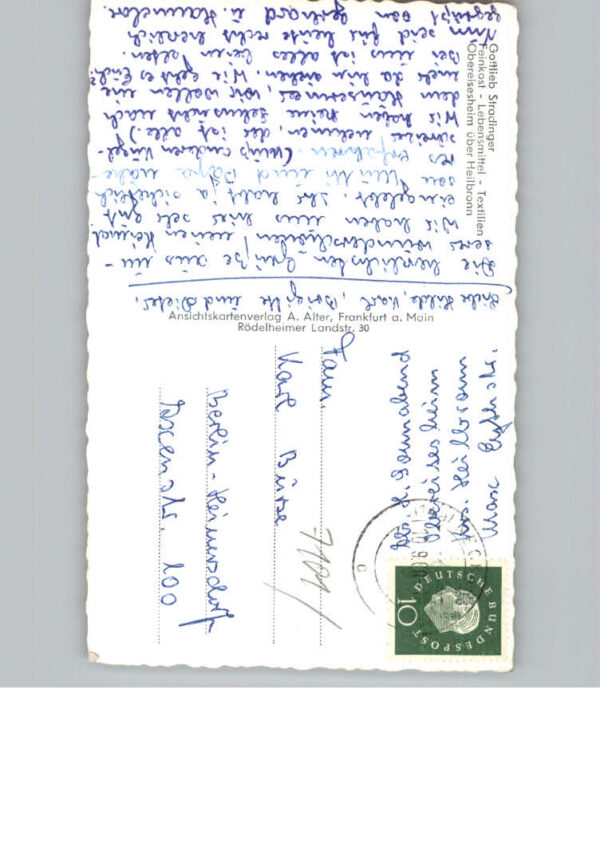 Gottlieb Stradinger
Feinkost - Lebensmittel - Textilien
Obereisesheim über Heilbronn
Liebe Hilde, Karl, Brigitte und Dieter,
Die herlichsten Grüße aus un-
serer wunderschönen neuen Heimat
Wir haben uns hier sehr gut
eingelebt. Ihr habt ja sicherlich
von und
es erfahren.
nehmen, das ist alle)
Wir haben keine Sehnsucht nach
dem wir wollen nie
mehr da hin ziehen. Wie geht es Euch?
Bei uns ist alles beim alten.
Nun seid für heute recht herzlich
gegrüßt von Gerhard u. Hannelore.
Ansichtskartenverlag A. Alter, Frankfurt a. Main
Rödelheimer Landstr. 30
Abs. Sonnabend
Obereisesheim
Krs. Heilbronn
Fam.
Karl
Berlin - Heinersdorf
100
DEUTSCHE BUNDESPOST
10